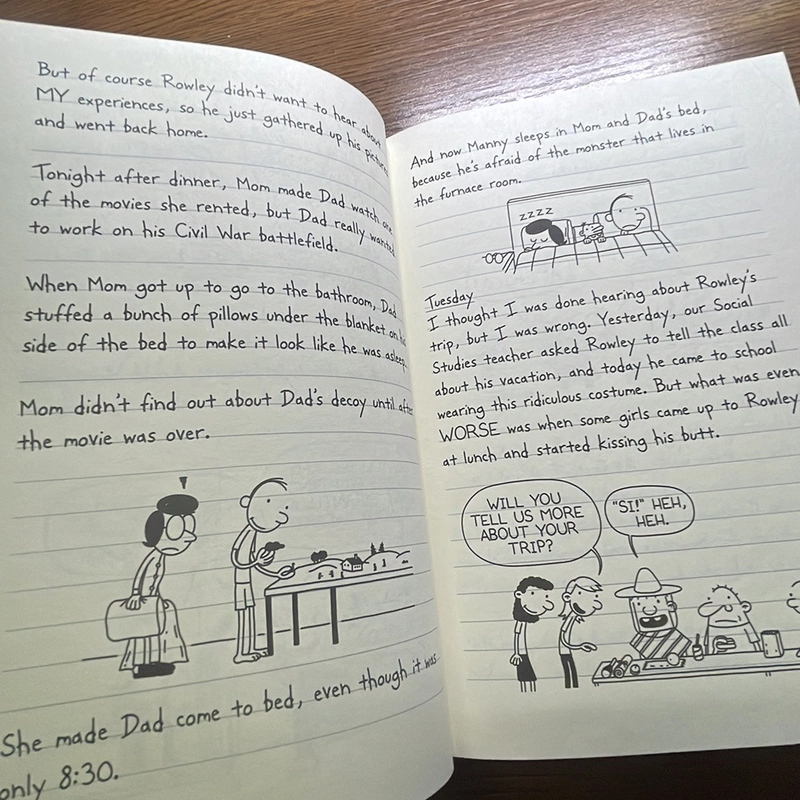 But of course Rowley didn't want to hear about
MY experiences, so he just gathered up his pictures
and went back home.
Tonight after dinner, Mom made Dad watch one
of the movies she rented, but Dad really wanted
to work on his Civil War battlefield.
When Mom got up to go to the bathroom, Dad
stuffed a bunch of pillows under the blanket on his
side of the bed to make it look like he was asleep.
Mom didn't find out about Dad's decoy until after
the movie was over.
She made Dad come to bed, even though it was
only 8:30.
And now Manny sleeps in Mom and Dad's bed,
because he's afraid of the monster that lives in
the furnace room.
ZZZZ
Tuesday
I thought I was done hearing about Rowley's
trip, but I was wrong. Yesterday, our Social
Studies teacher asked Rowley to tell the class all
about his vacation, and today he came to school
wearing this ridiculous costume. But what was even
WORSE was when some girls came up to Rowley
at lunch and started kissing his butt.
WILL YOU
TELL US MORE
ABOUT YOUR
TRIP?
"SI!" HEH,
HEH.